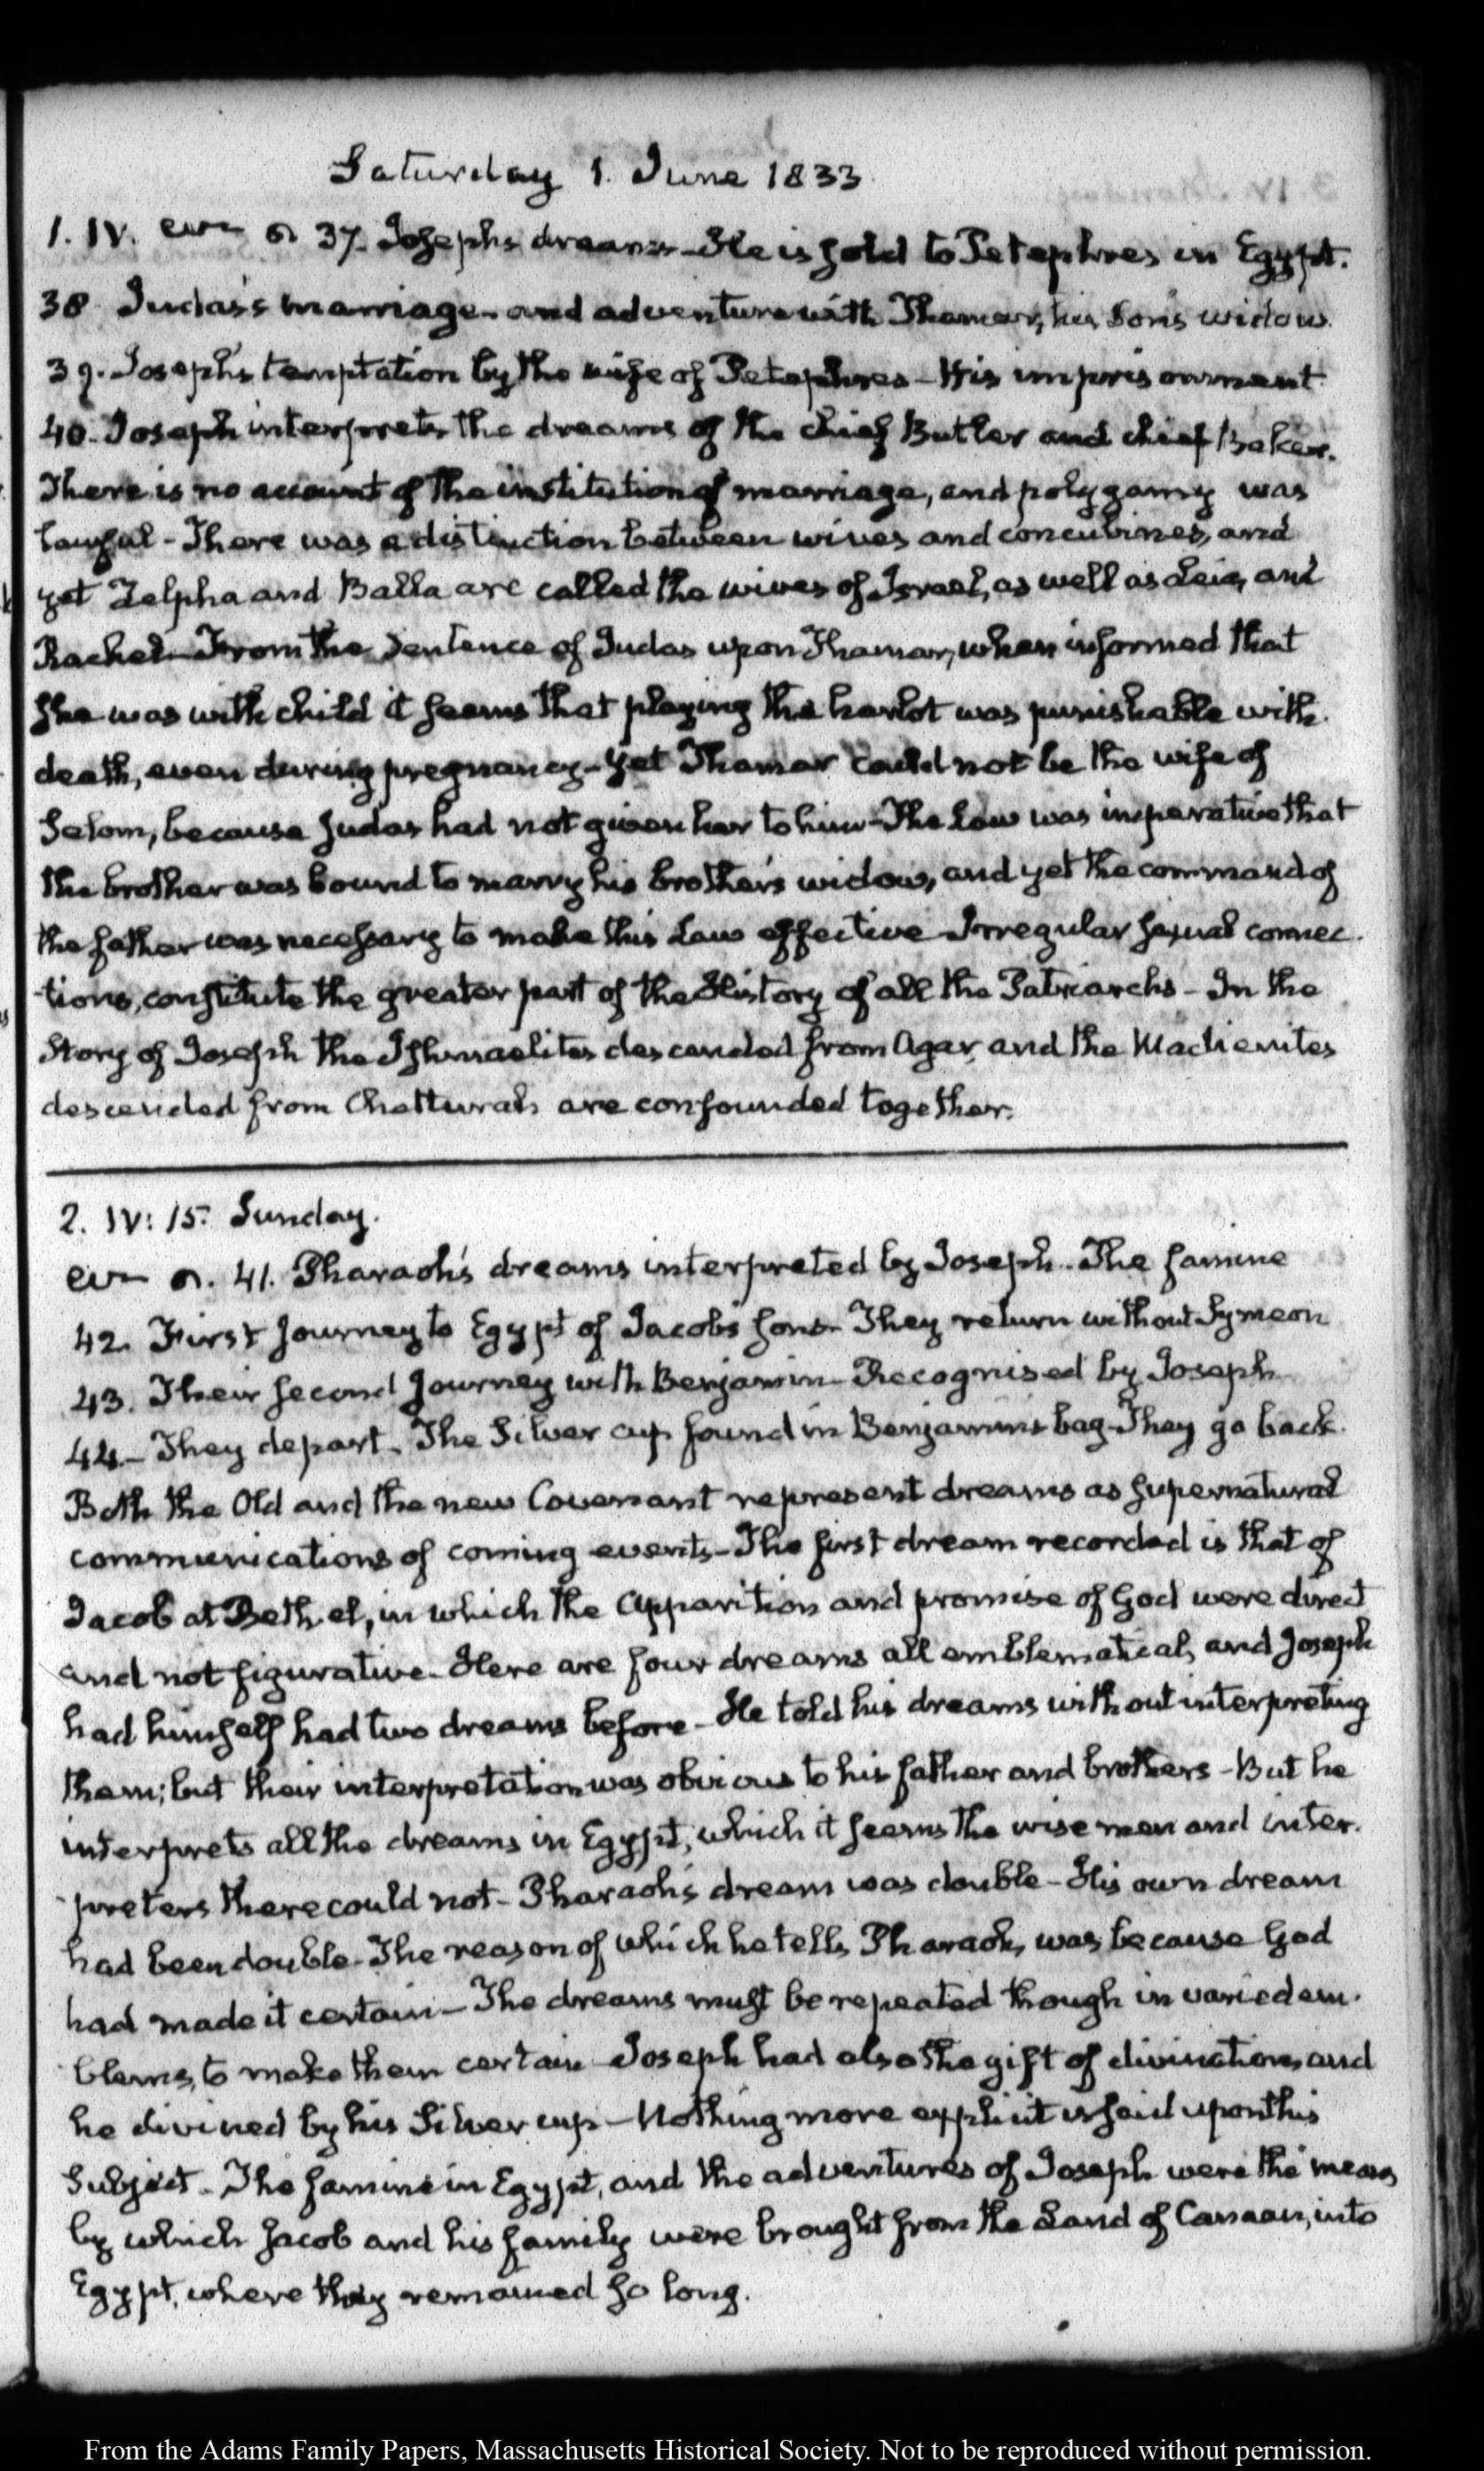 Saturday 1. June 1833
1. IV. 37. Josephs dreams - He is sold to Petephres in Egypt.
38 Judas's marriage - and adventure with Thamar, his Son's widow.
39. Joseph's temptation by the wife of Petephres - His imprisonment
40. Joseph interprets the dreams of the chief Butler and chief Baker.
There is no account of the institution of marriage, and polygamy was
lawful - There was a distinction between wives and concubines, and
yet Zelpha and Balla are called the wives of Israel, as well as Leia, and
Rachel - From the Sentence of Judas upon Thamar, when informed that
she was with child it seems that playing the harlot was punishable with
death, even during pregnancy - Yet Thamar could not be the wife of
Selom, because Judas had not given her to him - The Law was imperative that
the brother was bound to marry his brother's widow, and yet the command of
the father was necessary to make this Law effective - Irregular sexual connec-
tions, constitute the greater part of the History of all the Patriarchs - In the
Story of Joseph the Ishmaelites descended from Agar, and the Madienites
descended from Chetturah are confounded together.
2. IV: 15. Sunday.
41. Pharaoh's dreams interpreted by Joseph - The famine
42. First Journey to Egypt of Jacob's sons - They return without Symeon
43. Their second Journey with Benjamin - Recognised by Joseph
44. - They depart - The Silver cup found in Benjamins bag - They go back.
Both the Old and the new Covenant represent dreams as supernatural
communications of coming events - The first dream recorded is that of
Jacob at Bethel, in which the apparition and promise of God were direct
and not figurative - Here are four dreams all emblematical, and Joseph
had himself had two dreams before - He told his dreams without interpreting
them; but their interpretation was obvious to his father and brothers - But he
interprets all the dreams in Egypt, which it seems the wise men and inter-
preters there could not - Pharaoh's dream was double - His own dream
had been double - The reason of which he tells Pharaoh, was because God
had made it certain - The dreams must be repeated though in varied em-
blems, to make them certain - Joseph had also the gift of divination, and
he divined by his Silver cup - Nothing more explicit is said upon this
Subject - The famine in Egypt, and the adventures of Joseph were the means
by which Jacob and his family were brought from the Land of Canaan, into
Egypt, where they remained so long.
From the Adams Family Papers, Massachusetts Historical Society. Not to be reproduced without permission.